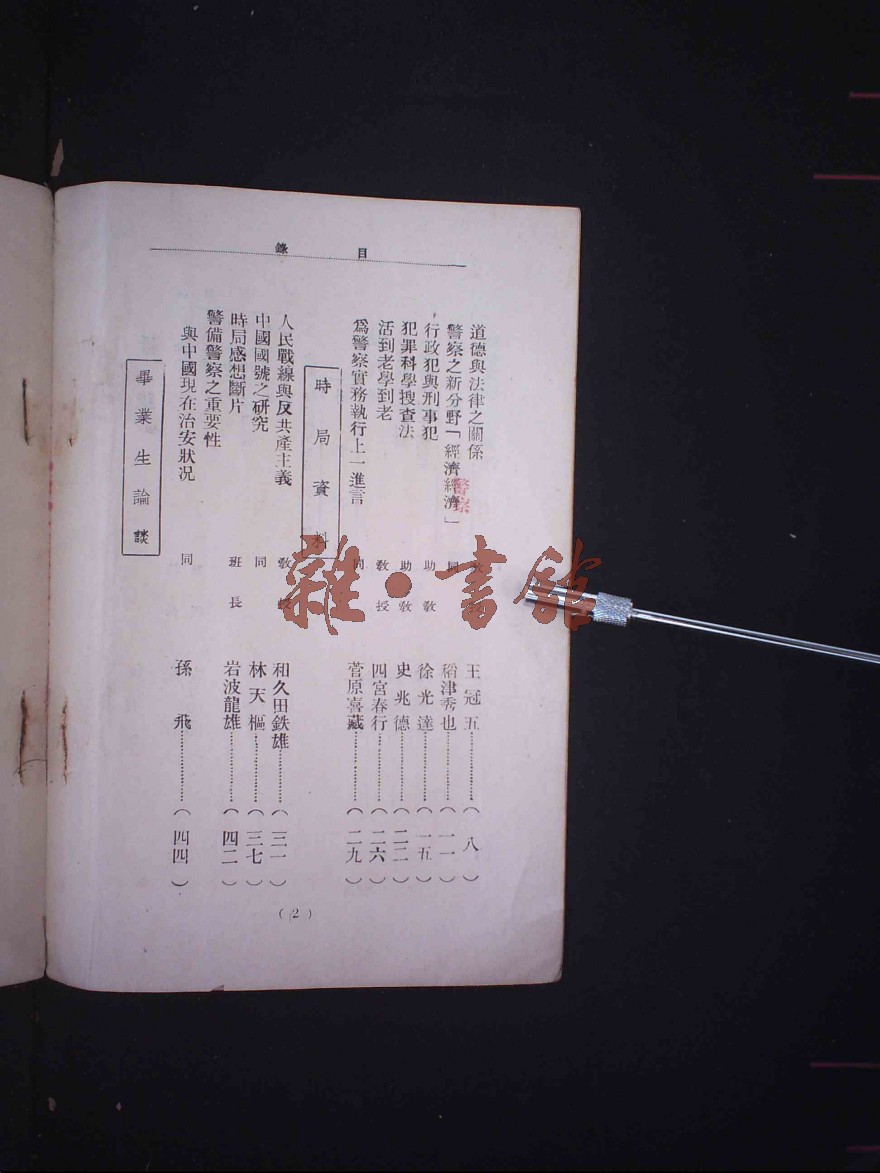 目錄
道德與法律之關係 教 王冠五…………(八)
警察之新分野「經濟經濟」 同 稻津秀也…………(一一)
警察
行政犯與刑事犯 助教 徐光達…………(一五)
犯罪科學搜查法 助教 史兆德…………(二二)
活到老學到老 教授 四宮春行…………(二六)
爲警察實務執行上一進言 同 菅原喜藏…………(二九)
時局資料
人民戰線與反共產主義 教授 和久田鉄雄…………(三一)
中國國號之研究 同 林天樞…………(三七)
時局感想斷片 班長 岩波龍雄…………(四二)
警備警察之重要性
與中國現在治安狀況 同 孫飛…………(四四)
畢業生論談
(2)
雜·書館